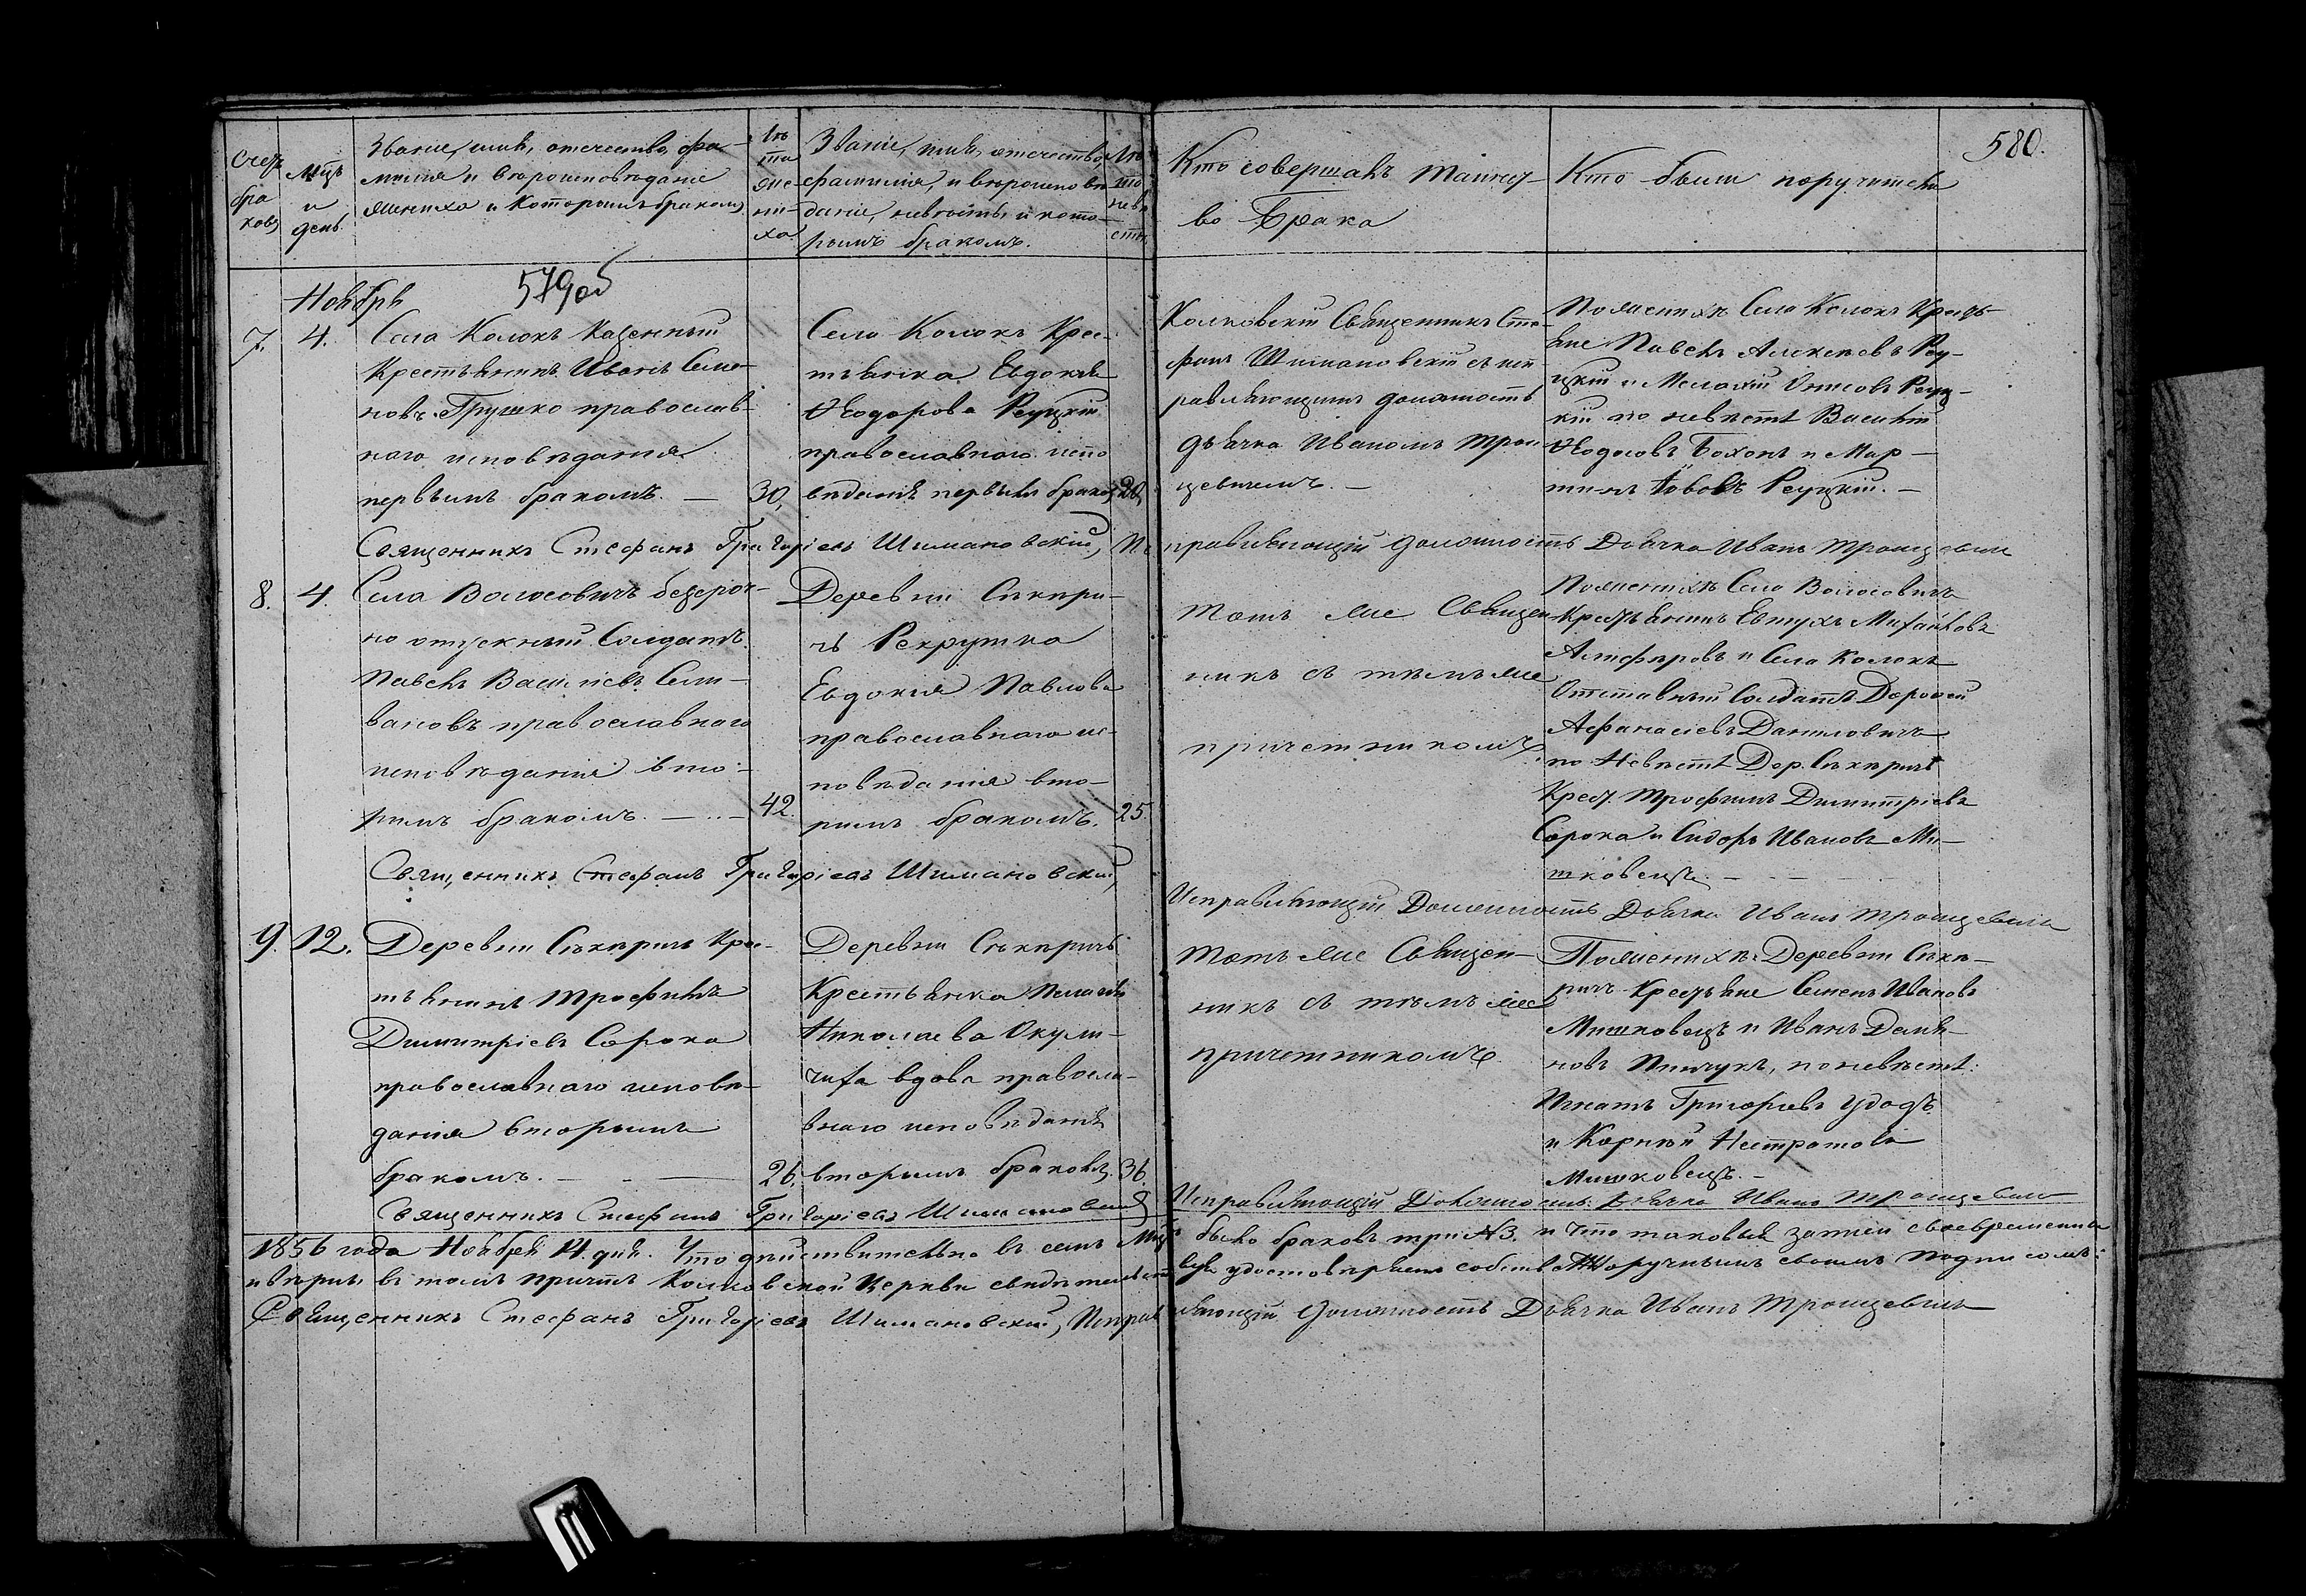 580.
Счетъ
бра
ковъ
Мцъ
и
день
Званіе, имя, отечество, фа-
милія и вѣроисповѣданіе
жениха и которымъ бракомъ
Лѣ
та
же-
ни-
ха.
Званіе, имя, отечество,
фамилія, и вѣроисповѣ
даніе, невѣсты, и кото-
рымъ бракомъ.
Лѣ
та
невѣ
сты
Кто совершалъ таинст-
во Брака
Кто были поручители
Ноябрь
579об
7.
4.
Села Колокъ казенный
Крестьянинъ Иванъ Семе-
новъ Грушко православ-
наго исповѣданія
первымъ бракомъ. —
30,
Села Колокъ Крес-
тьянка Евдокія
Ѳеодорова Реуцкій
православнаго испо
вѣданія первымъ бракомъ
20,
Колковскій Священникъ Сте-
фанъ Шимановскій съ исп
равляющимъ должность
дьячка Иваномъ Трои
цевичемъ. —
По женихѣ Села Колокъ Кресть-
яне Павелъ Алексѣевъ Реу-
цкій и Меласій Онисовъ Реуц-
кій по невѣстѣ Василій
Ѳеодосовъ Бохонъ и Мар-
тинъ Іововъ Реуцкій. —
Священникъ Стефанъ Григоріевъ Шимановскій, Исправляющій должность Дьячка Иванъ Троицевичъ
8.
4.
Села Волосовичъ безсроч-
но отпускный Солдатъ
Павелъ Васильевъ Сели-
вановъ православнаго
исповѣданія вто-
рымъ бракомъ. —
42.
Деревни Сѣкири-
чъ Рекрутка
Евдокія Павлова
православнаго ис-
повѣданія вто-
рымъ бракомъ.
25.
Тотъ же Священ-
никъ съ тѣмъ же
причетникомъ.
По женихѣ Села Волосовичъ
Крестьянинъ Евтухъ Михайловъ
Алиферовъ и Села Колокъ
Отставный Солдатъ Дорофей
Афанасіевъ Даниловичъ
по Невѣстѣ Дер. Сѣкиричъ
Крест. Трофимъ Димитріевъ
Сорока и Сидоръ Ивановъ Ми-
шковецъ. —
Священникъ Стефанъ Григоріевъ Шимановскій,
Исправляющій Должность Дьячка Иванъ Троицевичъ
9.
12.
Деревни Сѣкиричъ Крес-
тьянинъ Трофимъ
Димитріевъ Сорока
православнаго исповѣ-
данія вторымъ
бракомъ. —
26.
Деревни Сѣкиричъ
Крестьянка Пелагія
Николаева Окули-
чиха вдова правосла-
внаго исповѣданія
вторымъ бракомъ.
36.
Тотъ же Священ-
никъ съ тѣмъ же
причетникомъ.
По женихѣ Деревни Сѣки-
ричъ Крестьяне Семенъ Ивановъ
Мишковецъ и Иванъ Демя-
новъ Пинчукъ, по невѣстѣ:
Игнатъ Григорьевъ Удодъ
и Корнѣй Нестратовъ
Мишковецъ. —
Священникъ Стефанъ Григоріевъ Шимановскій
Исправляющій Должность Дьячка Иванъ Троицевичъ
1856 года Ноября 14. дня. Что дѣйствительно въ семъ Мцѣ было браковъ три №3. и что таковыя записи своевременны
и вѣрны въ томъ причтъ Колковской Церкви свидѣтельствуя удостовѣряетъ собственноручнымъ своимъ подписомъ:
Священникъ Стефанъ Григоріевъ Шимановскій, Исправляющій должность Дьячка Иванъ Троицевичъ